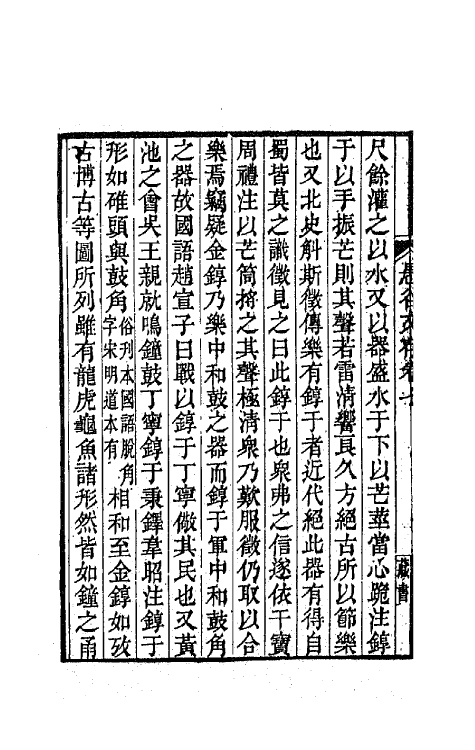 尺餘灌之以水又以器盛水于下以芒莖當心跪注錞
于以手振芒則其聲若雷清響良久方絕古所以節樂
也又北史斛斯徵傳樂有錞于者近代絕此器有得自
蜀皆莫之識徵見之曰此錞于也衆弗之信遂依干寶
周禮注以芒筒捋之其聲極清衆乃歎服徵仍取以合
樂焉竊疑金錞乃樂中和鼓之器而錞于軍中和鼓角
之器故國語趙宣子曰戰以錞于丁寧儆其民也又黃
池之會吳王親就鳴鐘鼓丁寧錞于秉鐸韋昭注錞于
形如碓頭與鼓角俗刊本國語脫角字宋明道本有相和至金錞如攷
古博古等圖所列雖有龍虎龜魚諸形然皆如鐘之甬
藏書